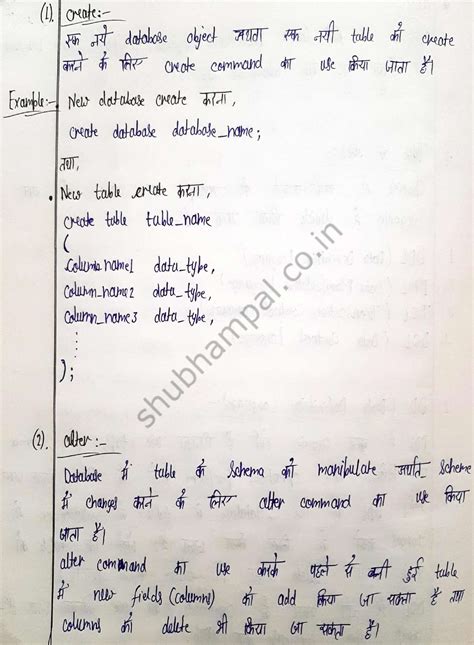 (1). Create:-
एक नये database object अथवा एक नयी table को create
करने के लिए create command का use किया जाता है।
Example:- New database create करना,
Create database database_name;
तथा,
• New table create करना,
Create table table_name
(
Column_name1 data_type,
Column_name2 data_type,
Column_name3 data_type,
⋮
);
shubhampal.co.in
(2). alter:-
Database में table के schema को manipulate अर्थात scheme
में changes करने के लिए alter command का use किया
जाता है।
alter command का use करके पहले से बनी हुई table
में new fields (columns) को add किया जा सकता है तथा
columns को delete भी किया जा सकता है।